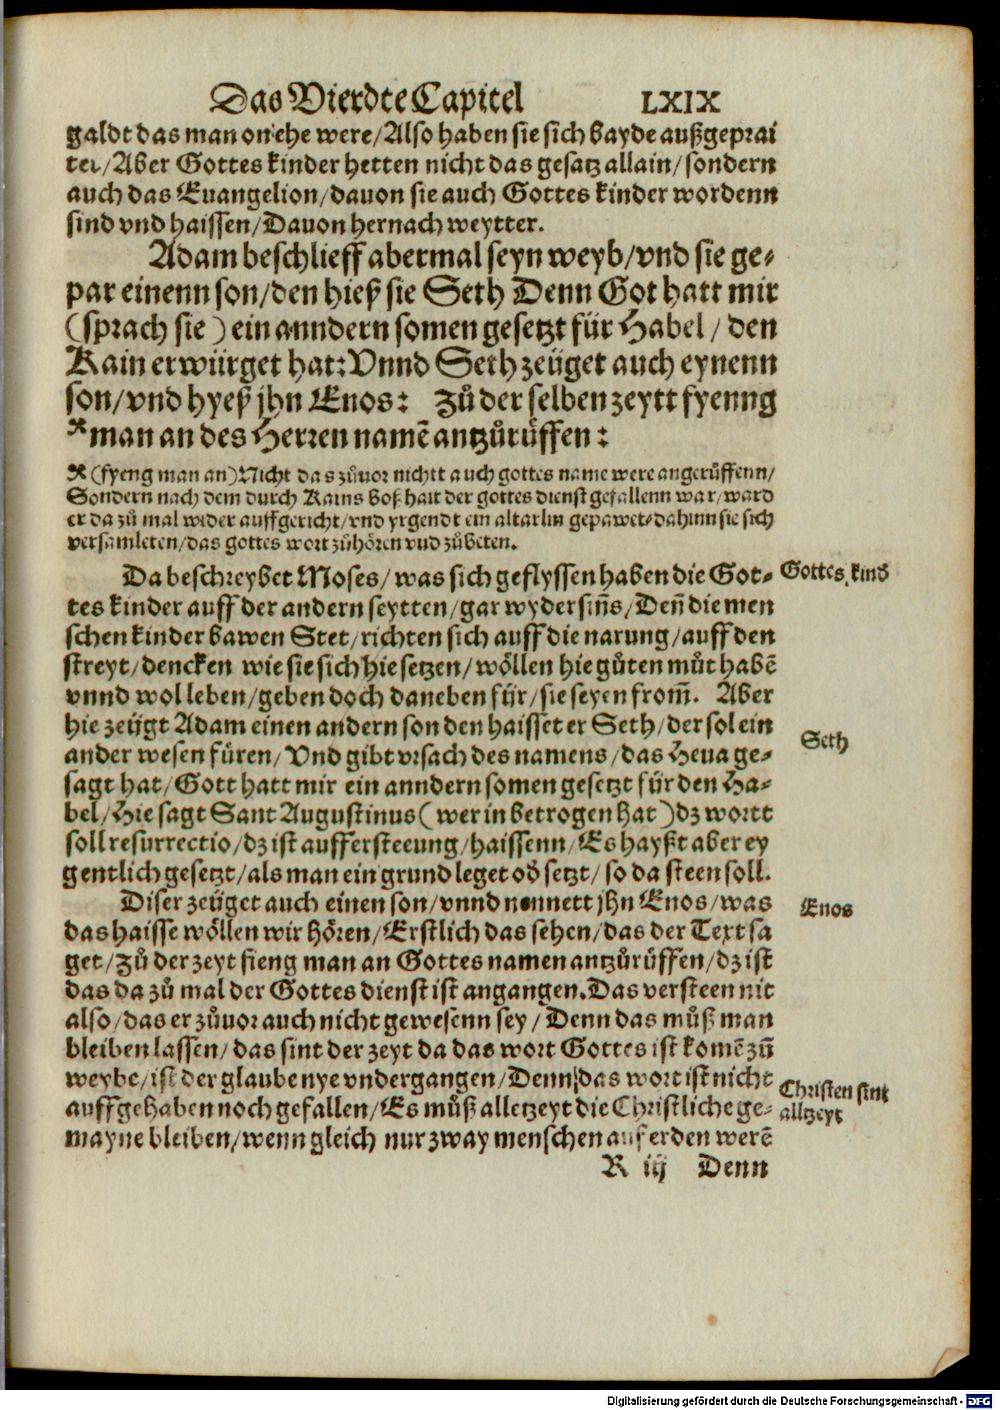 Das Vierdte Capitel LXIX
galdt das man on ehe were/Also haben sie sich bayde außgeprai
tet/Aber Gottes kinder hetten nicht das gesatz allain/sondern
auch das Euangelion/dauon sie auch Gottes kinder wordenn
sind vnd haissen/Dauon hernach weytter.
Adam beschlieff abermal seyn weyb/vnd sie ge-
par einenn son/den hieß sie Seth Denn Got hatt mir
(sprach sie) ein anndern somen gesetzt für Habel/den
Kain erwürget hat: Vnnd Seth zeüget auch eynenn
son/vnd hyeß jhn Enos: Zů der selben zeytt fyenng
*man an des Herren namē antzůrüffen:
* (fyeng man an) Nicht das zůuor nichtt auch gottes name were angerüffenn/
Sondern nach dem durch Kains boßhait der gottes dienst gefallenn war/ward
er da zů mal wider auffgericht/vnd yrgendt ein altarlin gepawet/dahinn sie sich
versamleten/das gottes wort zůhören vnd zůbeten.
Da beschreybet Moses/was sich geflyssen haben die Got-
Gottes kind
tes kinder auff der andern seytten/gar wyder siñs/Deñ die men
schen kinder bawen Stet/richten sich auff die narung/auff den
streyt/dencken wie sie sich hie setzen/wöllen hie gůten můt habē
vnnd wol leben/geben doch daneben für/sie seyen from̄. Aber
hie zeygt Adam einen andern son den haisset er Seth/der sol ein
Seth
ander wesen füren/Vnd gibt vrsach des namens/das Heua ge-
sagt hat/Gott hatt mir ein anndern somen gesetzt für den Ha-
bel/Hie sagt Sant Augustinus (wer in betrogen hat) dz wortt
soll resurrectio/dz ist auffersteeung/haissenn/Es hayßt aber ey
gentlich gesetzt/als man ein grund leget od̕ setzt/so da steen soll.
Diser zeüget auch einen son/vnnd nennett jhn Enos/was
Enos
das haisse wöllen wir hören/Erstlich das sehen/das der Text sa
get/Zů der zeyt fieng man an Gottes namen antzůrüffen/dz ist
das da zů mal der Gottes dienst ist angangen. Das versteen nit
also/das er zůuor auch nicht gewesenn sey/Denn das můß man
bleiben lassen/das sint der zeyt da das wort Gottes ist komē zū
weybe/ist der glaube nye vndergangen/Denn das wort ist nicht
Christen sint
allzeyt
auffgehaben noch gefallen/Es můß alletzeyt die Christliche ge-
mayne bleiben/wenn gleich nur zway menschen auf erden werē
R iij Denn
Digitalisierung gefördert durch die Deutsche Forschungsgemeinschaft - DFG